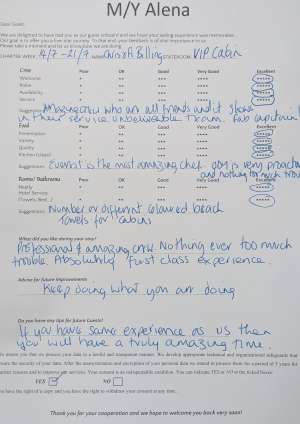 M/Y Alena
Dear Guest,
We are delighted to have had you as our guest onboard and we hope your sailing experience was memorable.
Our goal is to offer you a five-star journey. To that end your feedback is of vital importance to us.
Please take a moment and let us know how we are doing
CHARTER WEEK 4/7-21/7 NAME STATEROOM VIP Cabin
Crew Poor OK Good Very Good Excellent
Welcome
Poise
Availability
Service
Suggestions: Amazing crew who are all friends and it shows
in their service. Unbelievable Team.
Food Poor OK Good Very Good Excellent
Presentation
Variety
Quality
Kitchen Island
Suggestions: is the most amazing chef. is very proactive
and nothing too much trouble
Rooms/Bathrooms Poor OK Good Very Good Excellent
Neatly
Hotel Service
(Towels, Bed...)
Suggestions: Number or different coloured beach
towels for cabins
What did you like during your stay?
Professional & amazing crew. Nothing ever too much
trouble. Absolutely first class experience.
Advice for future improvements
Keep doing what you are doing
Do you have any tips for future Guests?
If you have same experience as us then
you will have a truly amazing time.
YES NO
to have the right of copy and you have the right to withdraw your consent at any time.
Thank you for your cooperation and we hope to welcome you back very soon!